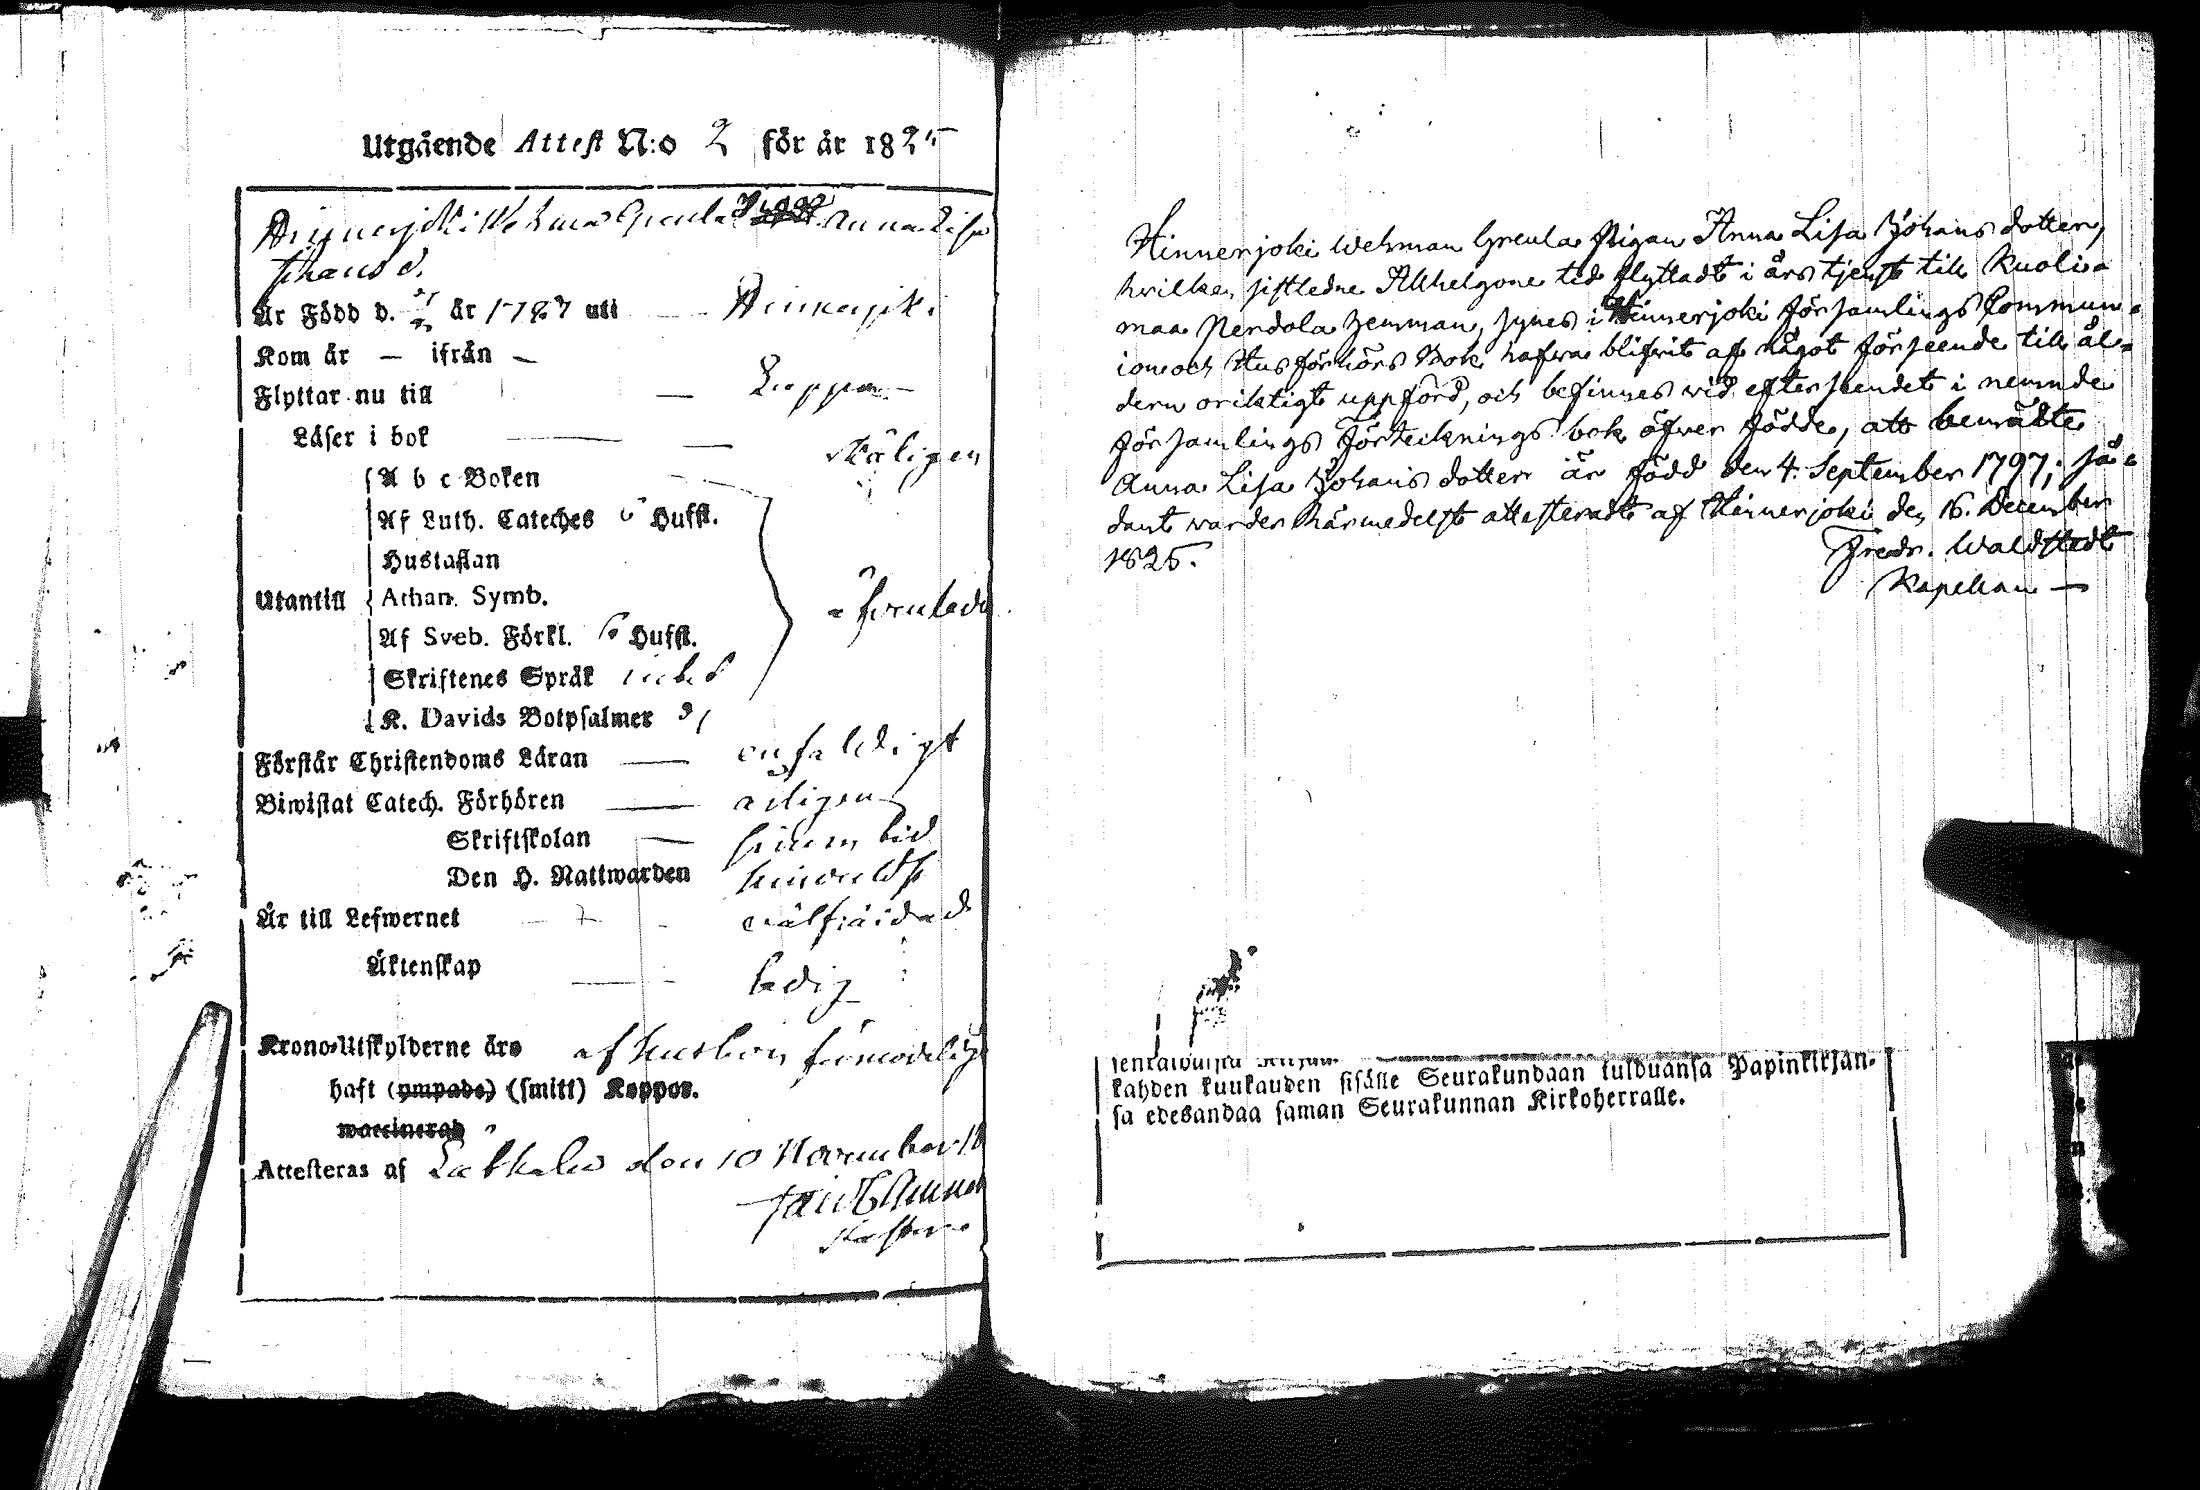 Utgående Attest N:o 2 för år 1825
Anna Lisa
Är Född d. år 1787 uti Hinnerjoki
Kom år — ifrån —
Flyttar nu till — Lappi
Läser i bok — — skäligen
A b c Boken
Af Luth. Cateches 5 Hufst.
Hustaflan
Utantill Athan. Symb.
Af Sveb. Förkl. 6 Hufst.
Skriftenes Språk
K. Davids Botpsalmer
Förstår Christendoms Läran — enfaldigt
Biwistat Catech. Förhören — årligen
Skriftskolan — i sinom tid
Den H. Nattwarden
Är till Lefwernet - - wälfräjdad
Äktenskap — - ledig
Krono-Utskylderne äro af husbon
haft (ympade) (smitt) Koppor.
waccinerad
Attesteras af den 10 November 18
Hinnerjoki Wehman Greula Pigan Anna Lisa Johans dotter,
hvilken sistledne Allhelgone tid flyttadt i års tjenst till Kuolia
maa Perdola Zemman, synes i Hinnerjoki församlings Commun-
ion och Husförhörs Bok hafwa blifvit af något förseende till ål-
dern oriktigt uppförd, och befinnes wid efterseendet i nemnde
församlings förtecknings bok öfwer födde, att bemälte
Anna Lisa Johans dotter är född den 4. September 1797; så-
dant warder härmedelst attesteradt af Hinnerjoki den 16. December
1825. Fredr. Waldstedt
Kapellan —
kahden kuukauden sisälle Seurakundaan tulduansa Papinkirjan-
sa edesandaa saman Seurakunnan Kirkoherralle.